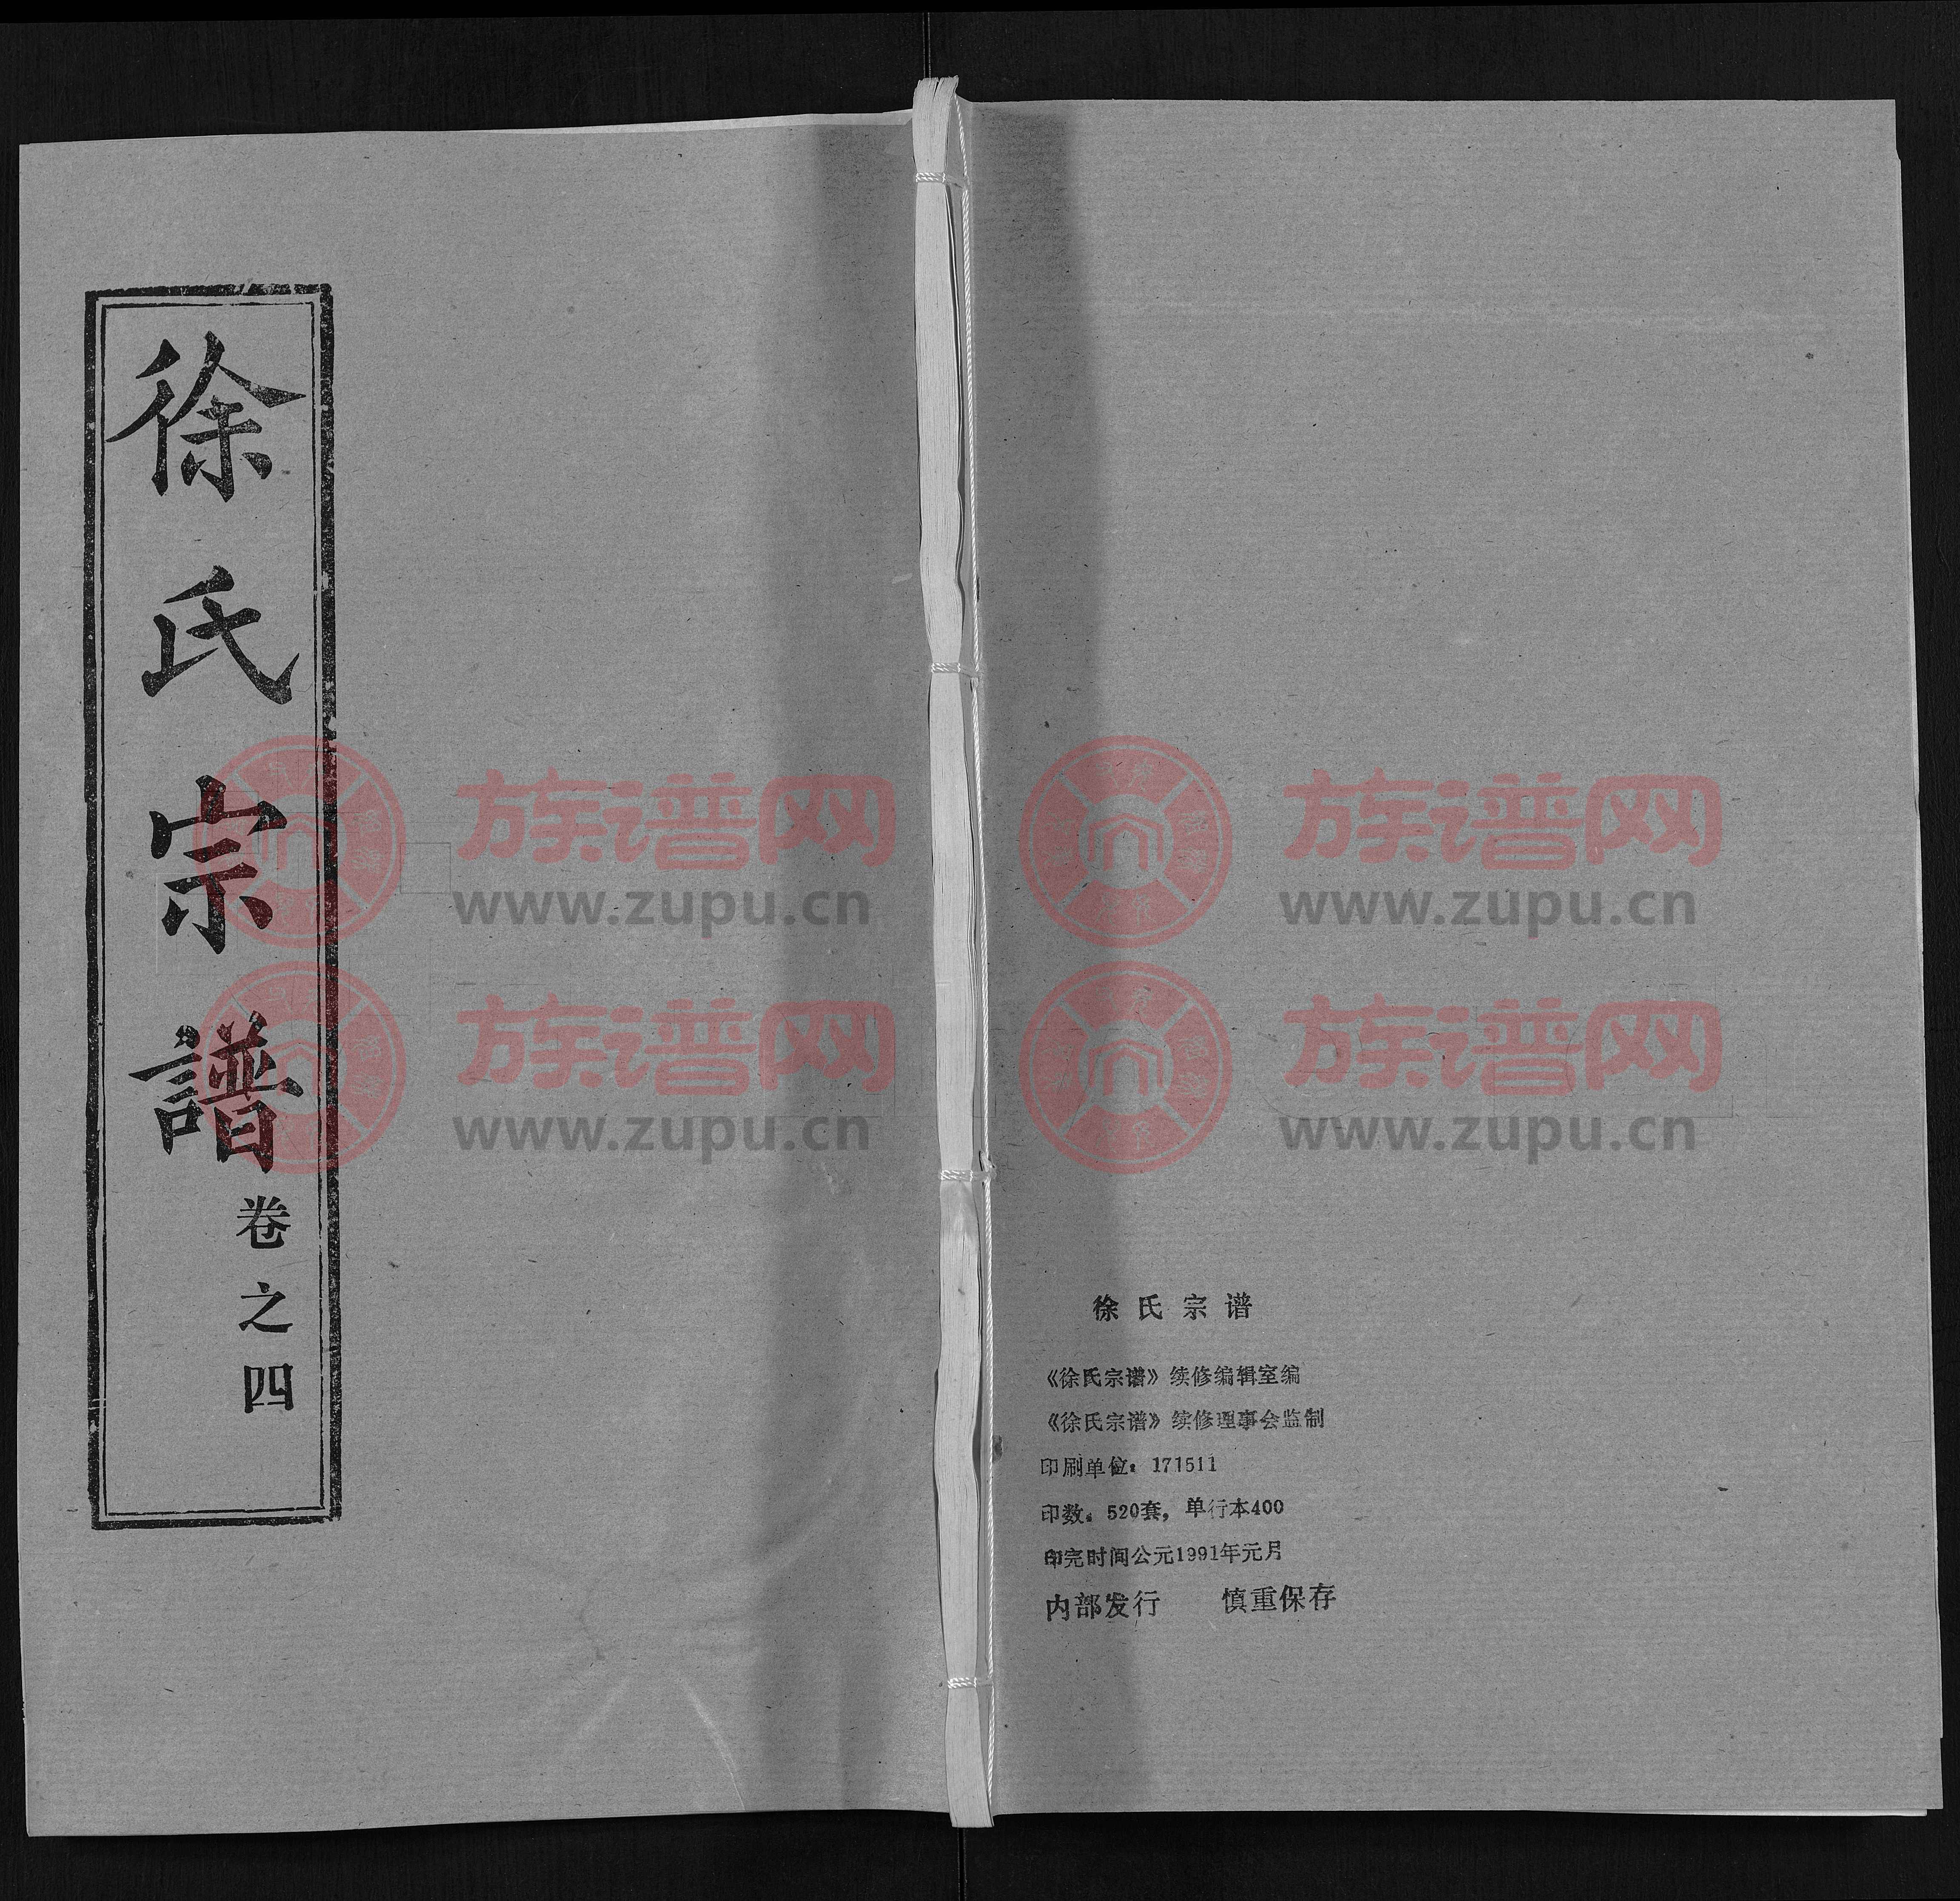 徐氏宗譜
卷之四
徐氏宗谱
《徐氏宗谱》续修编辑室编
《徐氏宗谱》续修理事会监制
印刷单位：171511
印数：520套，单行本400
印完时间公元1991年元月
内部发行 慎重保存
族谱网
www.zupu.cn
族谱网
www.zupu.cn
族谱网
www.zupu.cn
族谱网
www.zupu.cn